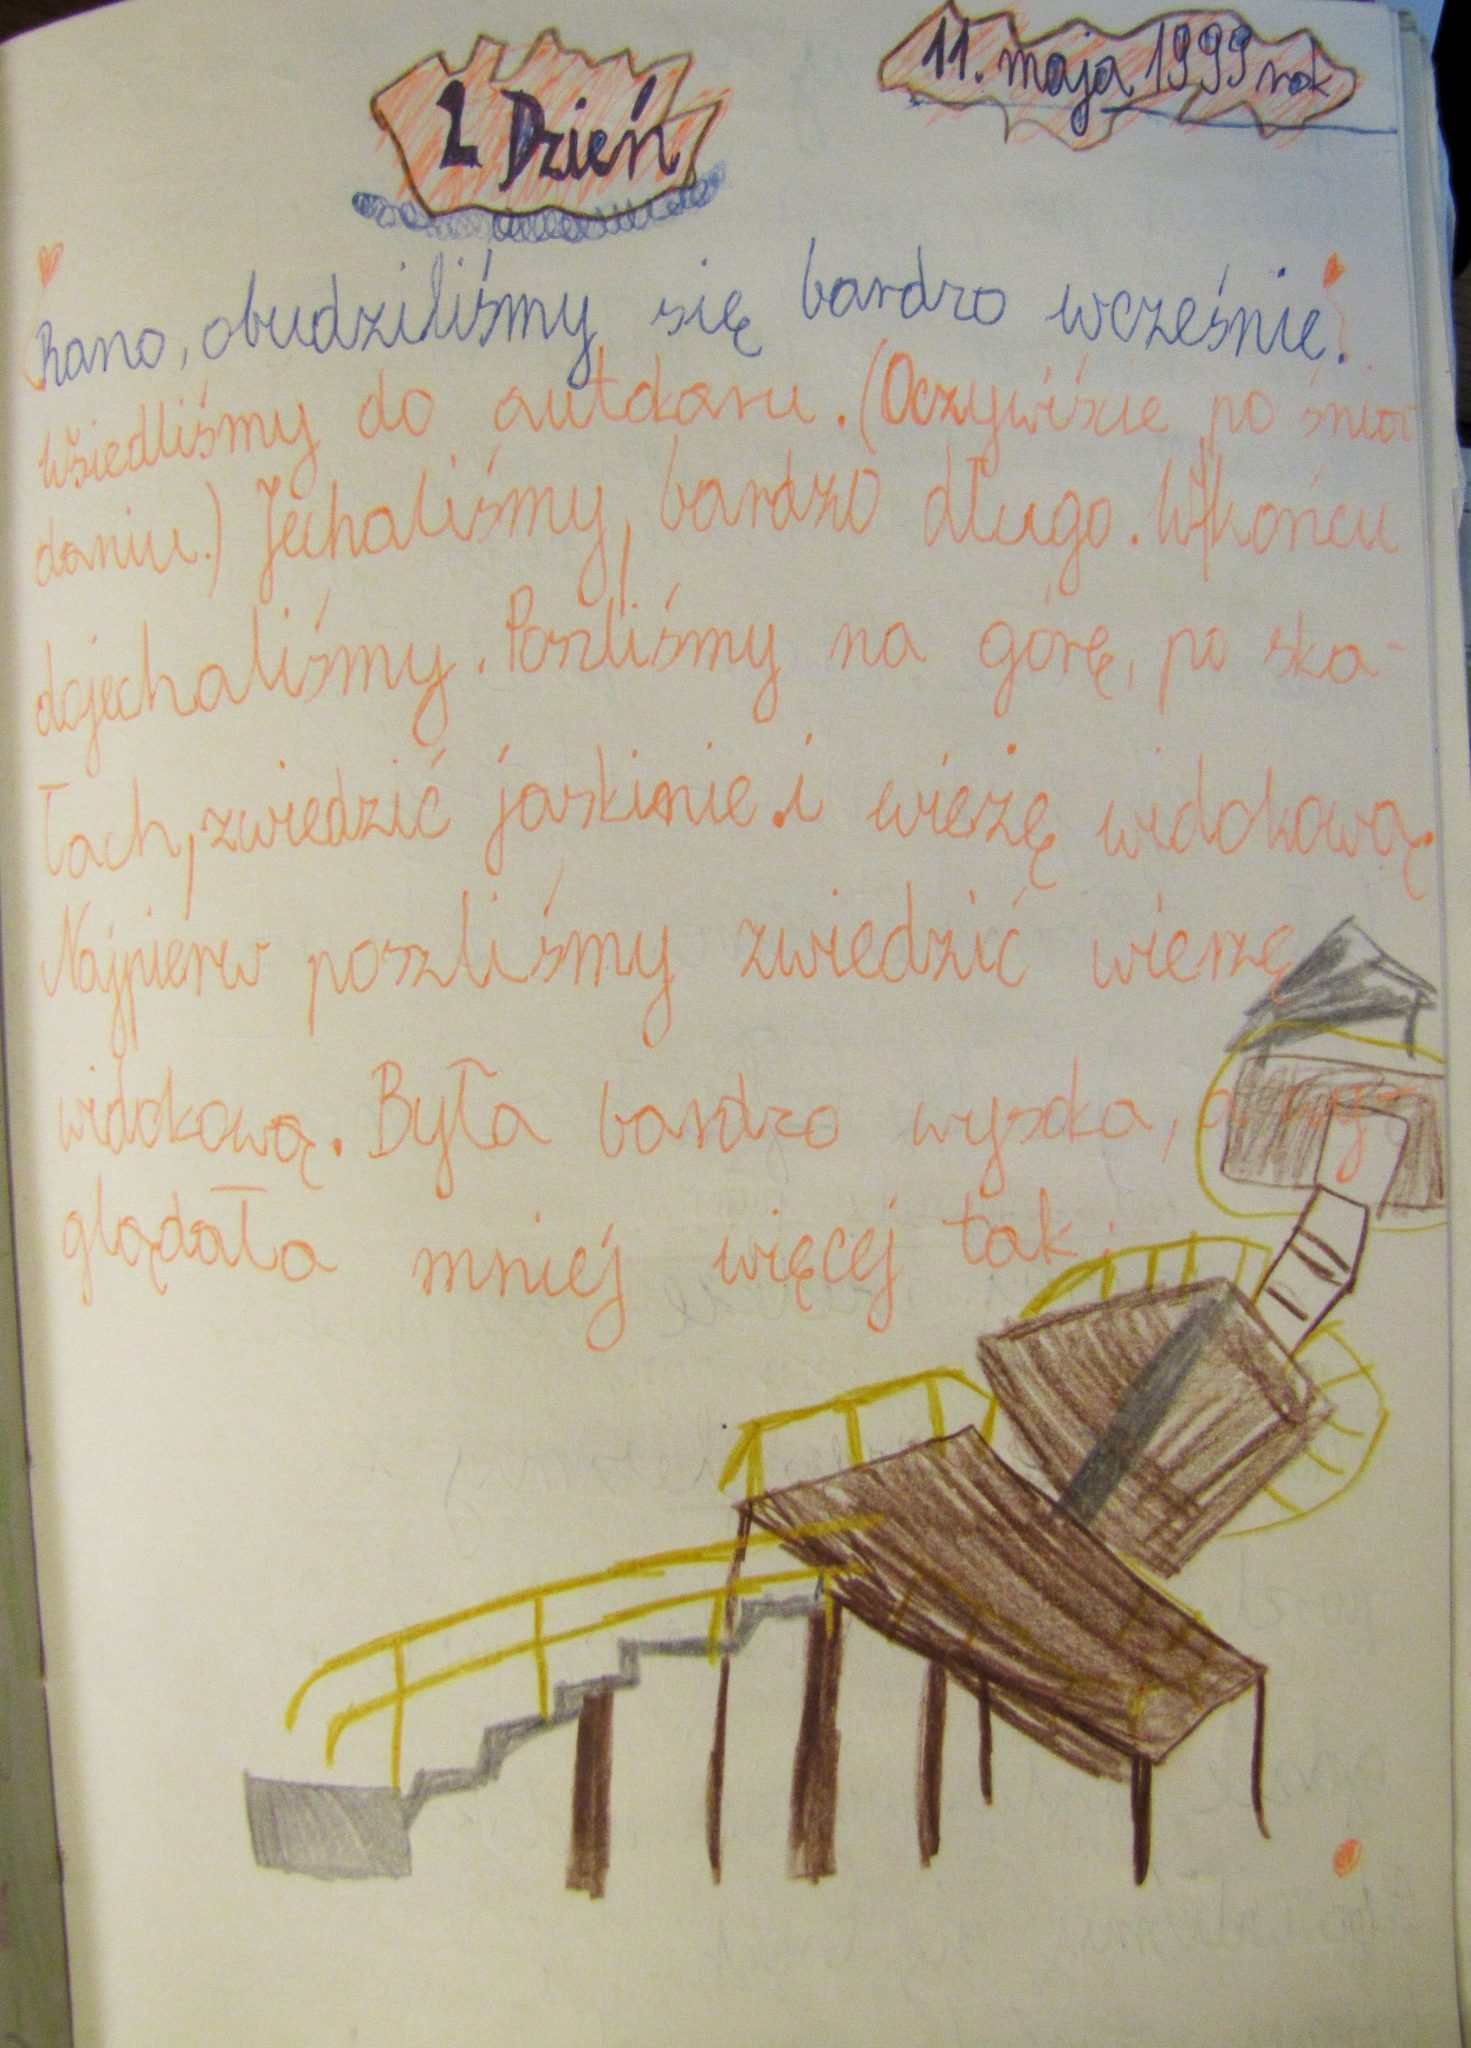 2 Dzień
11. maja 1999 rok
Rano, obudziliśmy się bardzo wcześnie.
Wsiedliśmy do autokaru. (Oczywiście po śnia
daniu.) Jechaliśmy bardzo długo. W końcu
dojechaliśmy. Poszliśmy na górę, po ska-
łach, zwiedzić jaskinie i wieżę widokową.
Najpierw poszliśmy zwiedzić wierzę
widokową. Była bardzo wysoka, a wy
glądała mniej więcej tak: